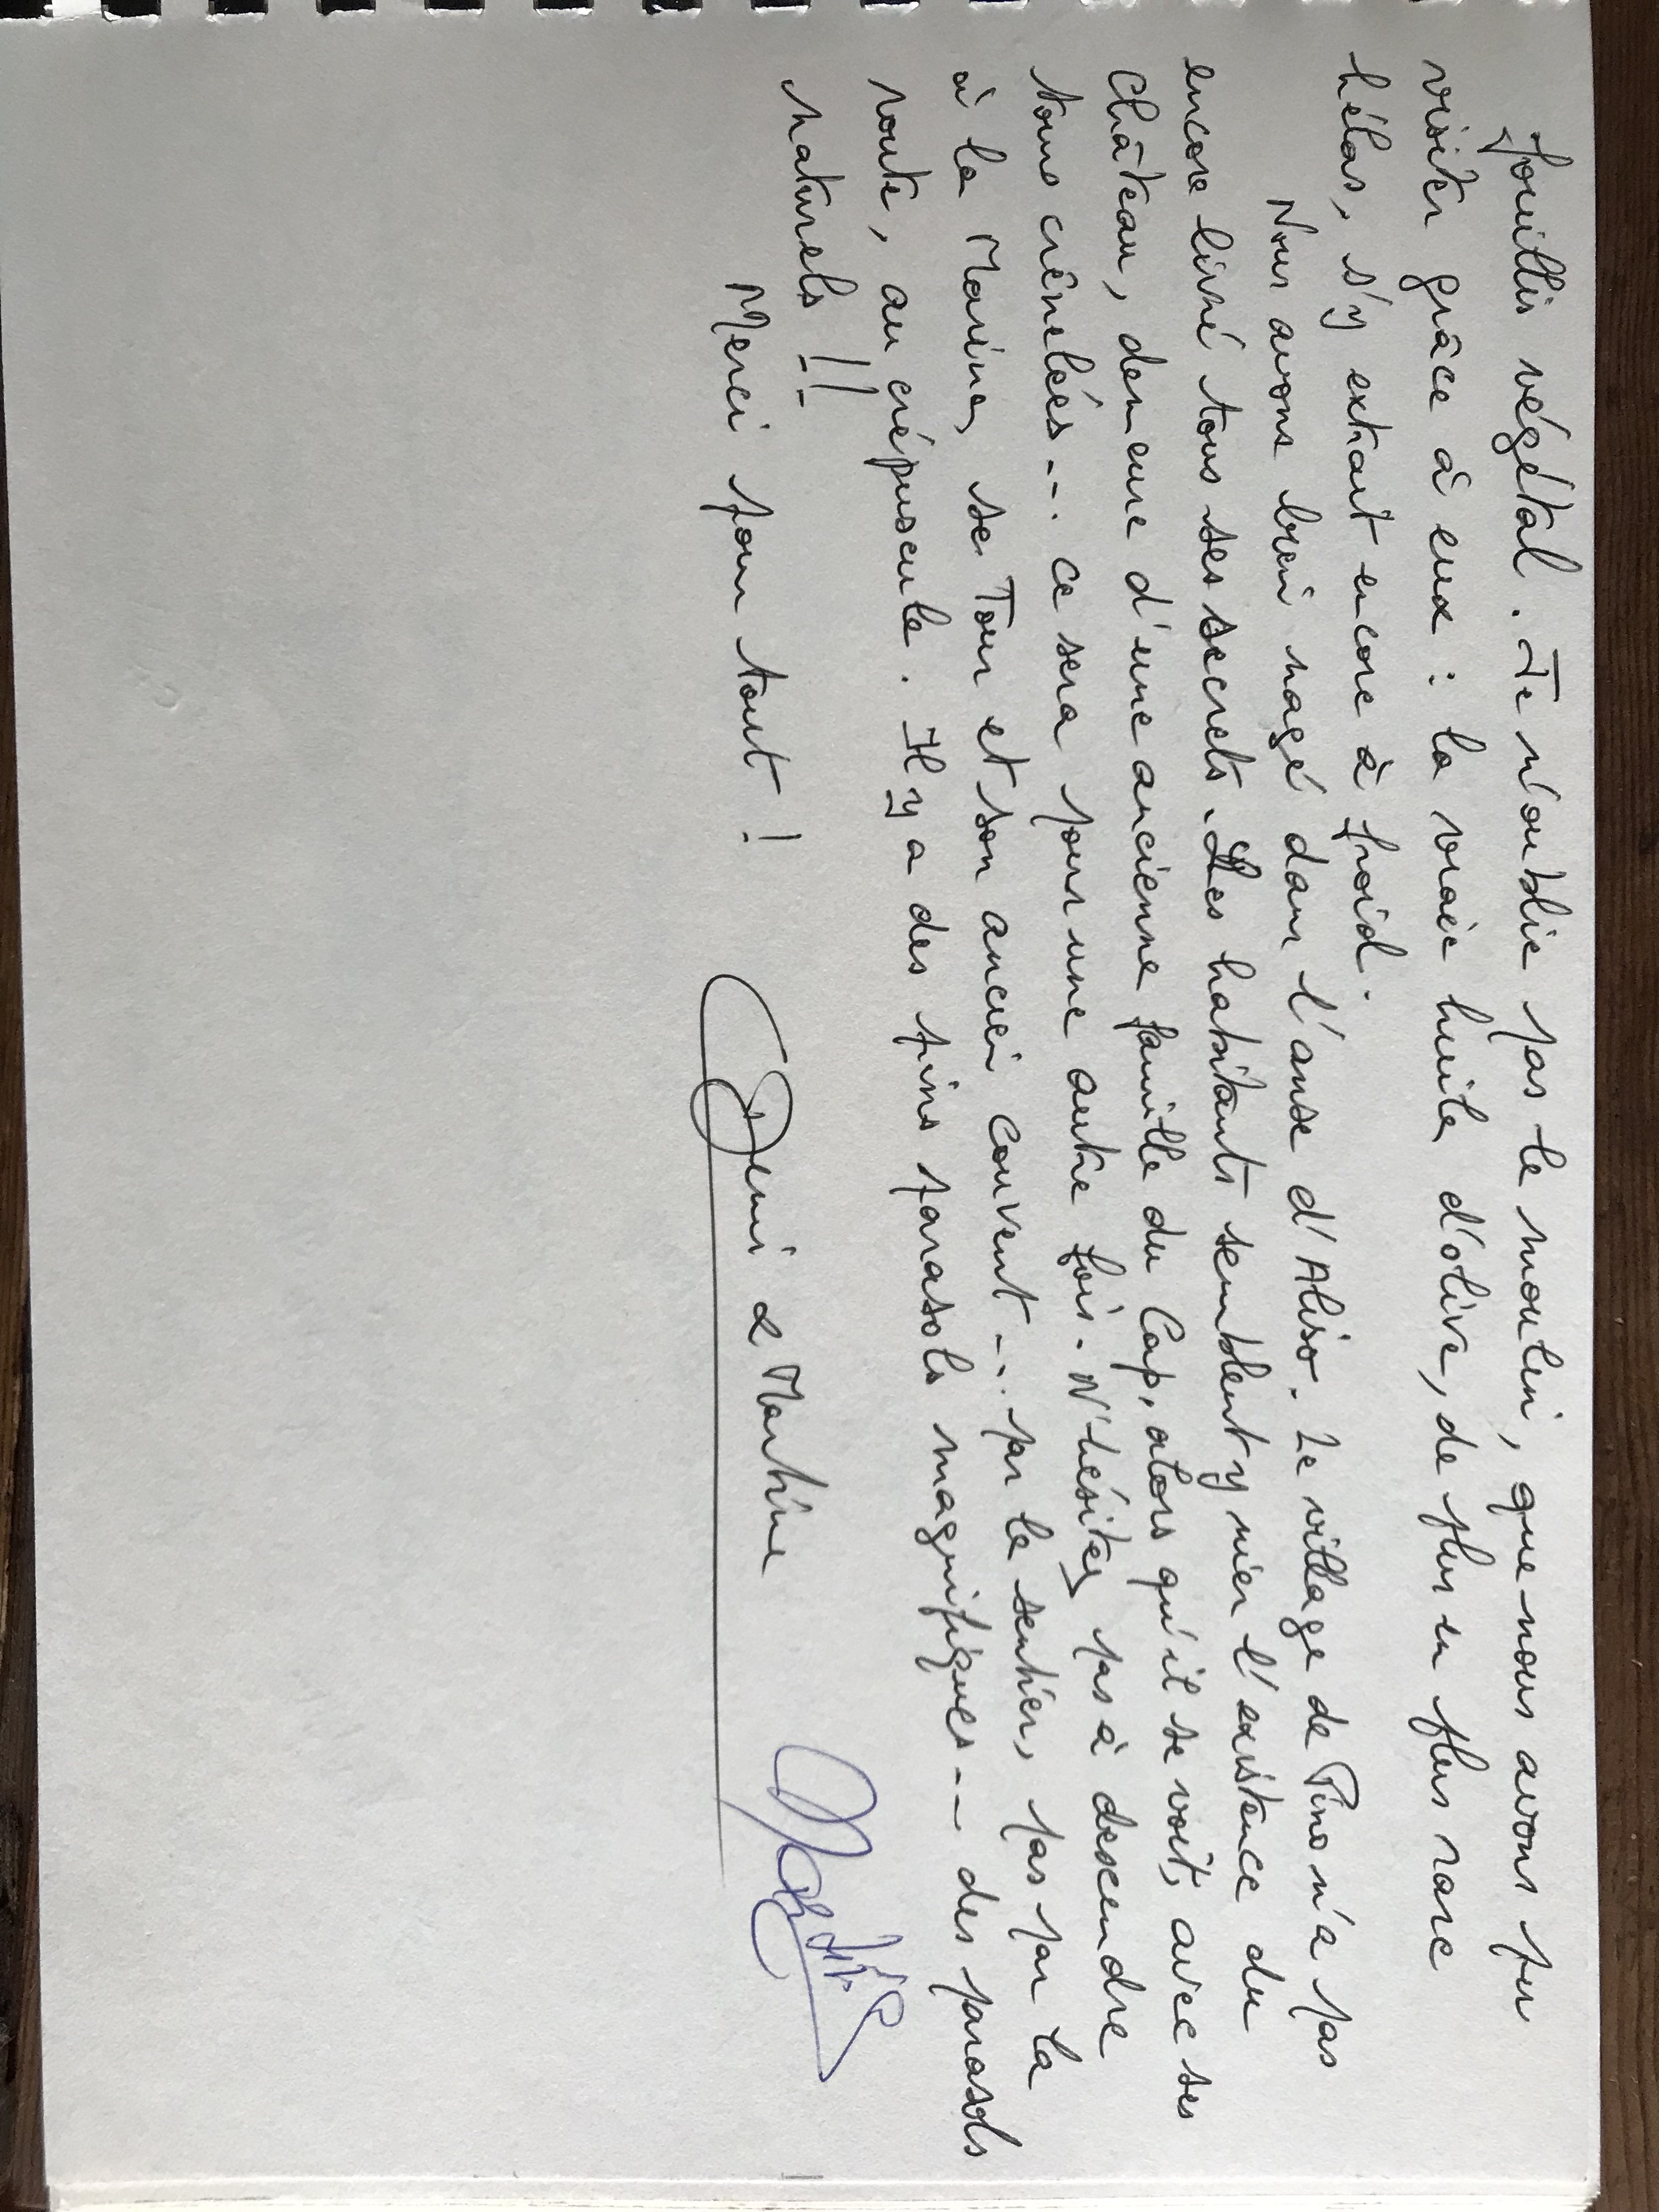 fouillis végétal. Je n'oublie pas le moulin, que nous avons pu
visiter grâce à eux : la vraie huile d'olive, de plus en plus rare
hélas, s'y extrait encore à froid.
Nous avons bien nagé dans l'anse d'Aliso. Le village de Pino n'a pas
encore livré tous ses secrets. Les habitants semblent y nier l'existence du
Château, demeure d'une ancienne famille du Cap, alors qu'il se voit, avec ses
tours crénelées... ce sera pour une autre fois. N'hésitez pas à descendre
à la Marine, sa Tour et son ancien couvent... par le sentier, pas par la
route, au crépuscule. Il y a des pins parasols magnifiques... des parasols
naturels !!
Merci pour tout ! Denis & Martine
Martine